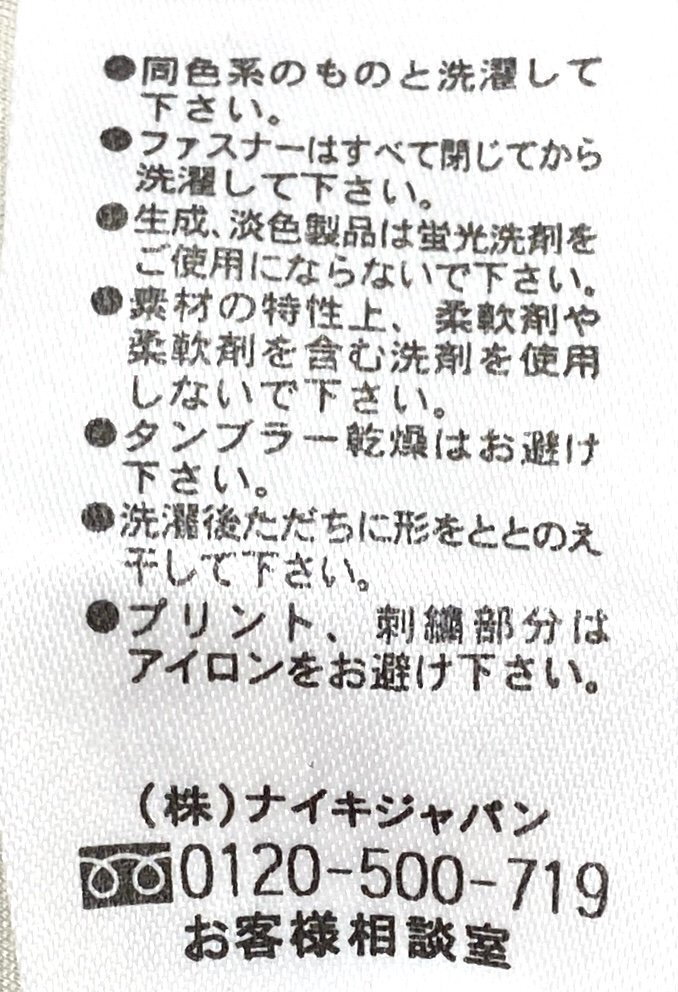 ●同色系のものと洗濯して
下さい。
●ファスナーはすべて閉じてから
洗濯して下さい。
●生成、淡色製品は蛍光洗剤を
ご使用にならないで下さい。
●素材の特性上、柔軟剤や
柔軟剤を含む洗剤を使用
しないで下さい。
●タンブラー乾燥はお避け
下さい。
●洗濯後ただちに形をととのえ
干して下さい。
●プリント、刺繍部分は
アイロンをお避け下さい。
(株)ナイキジャパン
0120-500-719
お客様相談室